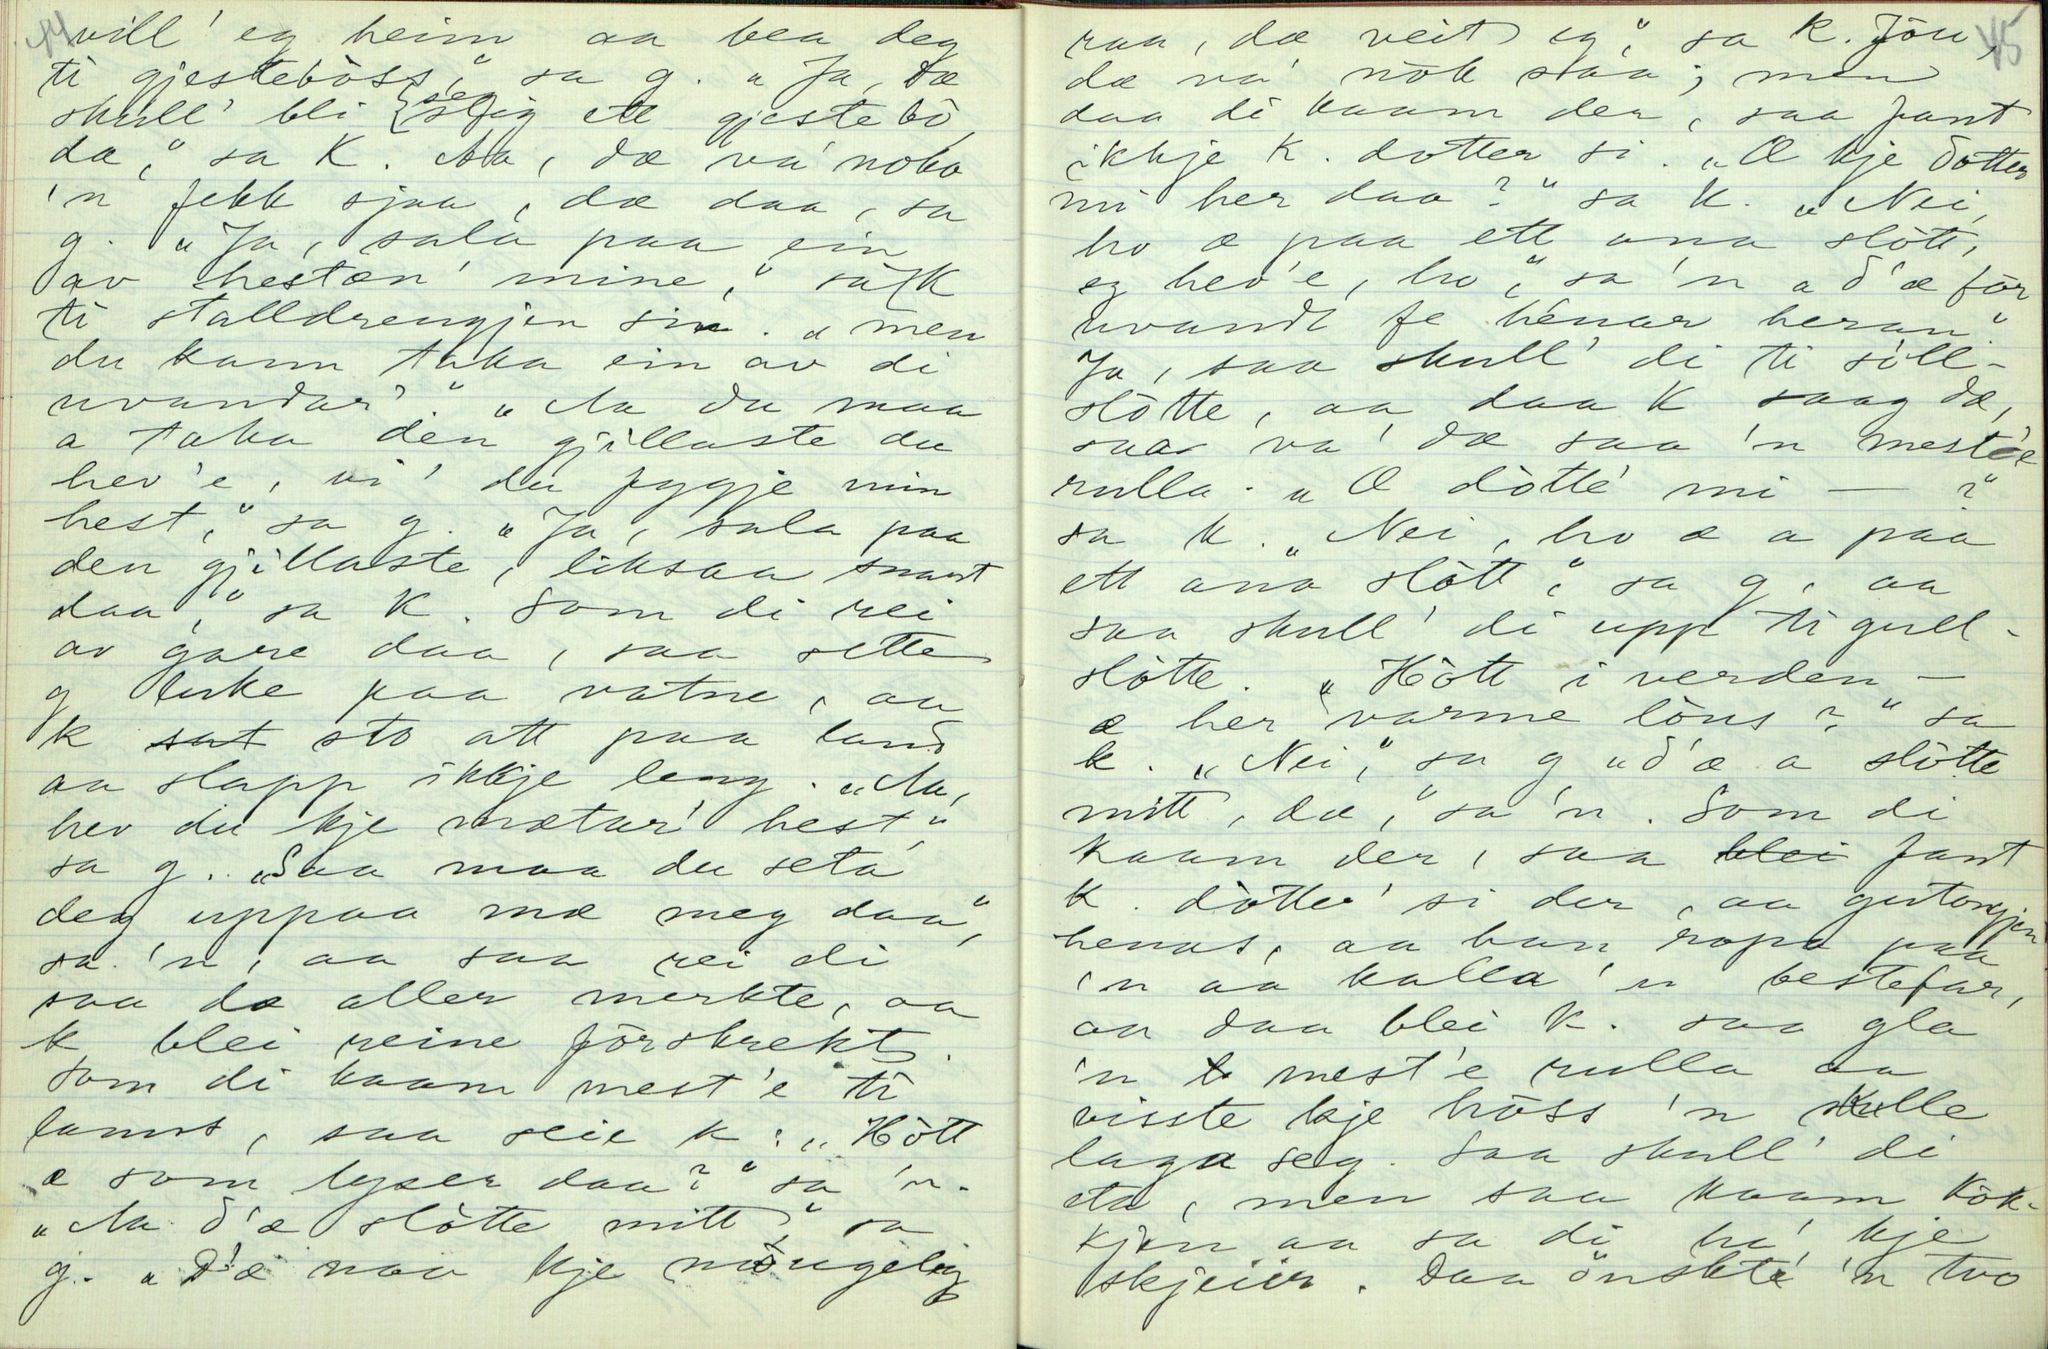 44
vill' eg heim aa bea deg
ti gjestebòss," sa g. „Ja, dæ
skull' bli seg slig ett gjestebò,
dæ," sa K. Aa, dæ va' noko
'n fekk sjaa, dæ daa, sa
g. „Ja, sala paa ein
av hestan' mine," sa K
ti stalldrengjen sin. „men
du kann taka ein av di
uvandar'." „Aa du maa
a taka den gjillaste du
hev'e, vi' du fyggje min
hest," sa g. „Ja, sala paa
den gjillaste, liksaa snart
daa," sa K. Som di rei
av gare daa, saa sette
g luke paa vatne, aa
K sat sto att paa land
aa slapp ikkje leng. „Aa,
hev du kje mætar' hest"
sa g. „Saa maa du seta
deg uppaa mæ meg daa",
sa 'n, aa saa rei di
saa dæ aller merkte, aa
K blei reine förskrekt.
Som di kaam mest'e ti
lannt, saa seie K: „Hòtt
æ som lyser daa?" sa 'n.
„Aa d'æ slòtte mitt," sa
g. „D'æ naa kje möugelig
45
raa, dæ veit eg," sa K. Jöu,
dæ va' nòk saa; men
daa di kaam der, saa fant
ikkje K. dotter si. „Æ kje dòtter
mi her daa?" sa K. „Nei,
ho æ paa ett ana slòtt,
eg hev'e, ho," sa 'n „d'æ för
uvandt fe hénar heran".
Ja, saa skull' di ti sòll-
slòtte, aa daa K saag dæ,
saa va' dæ saa 'n mest'e
rulla. „Æ dòtte' mi — ?"
sa K. „Nei, ho æ a paa
ett ana slòtt," sa g, aa
saa skull' di upp ti gull-
slòtte. „Hòtt i verden —
æ her varme löus?" sa
K. „Nei," sa g „d'æ a slòtte
mitt, dæ," sa 'n. Som di
kaam der, saa blei fant
K. dòtter' si der, aa gutongjen
henas, aa han ropa paa
'n aa kalla 'n bestefar,
aa daa blei K. saa gla
'n mest'e rulla aa
visste kje hòss 'n skulle
laga seg. Saa skull' di
eta, men saa kaam kök-
kjen aa sa di ha' kje
skjeier. Daa önskte 'n tvo